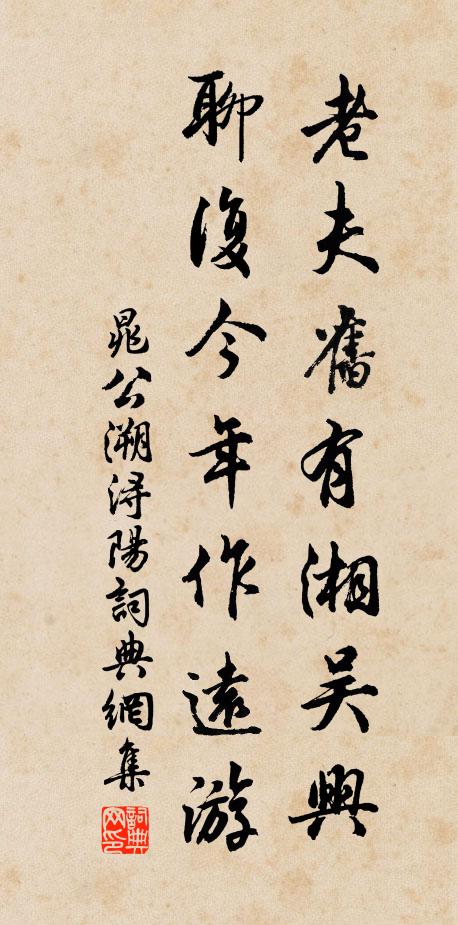 老夫舊有湘吴興
聊復今年作遠游
晁公溯潯陽詞典網集
詞典网印